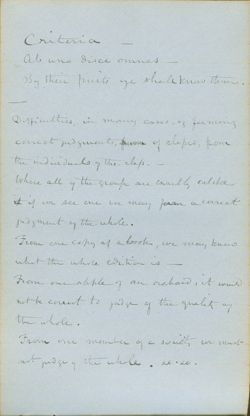 Criteria —
Ab uno disce omnes —
By their fruits ye shall know them.
—
Difficulties, in many cases, of forming
correct judgments, of classes, from
the individuals of the class. —
Where all of the group are exactly
if we see one we may form a correct
judgment of the whole.
From one copy of a book, we may know
what the whole edition is —
From one apple of an orchard, it would
not be correct to judge of the quality of
the whole.
From one member of a society we must
not judge of the whole. &c. &c.